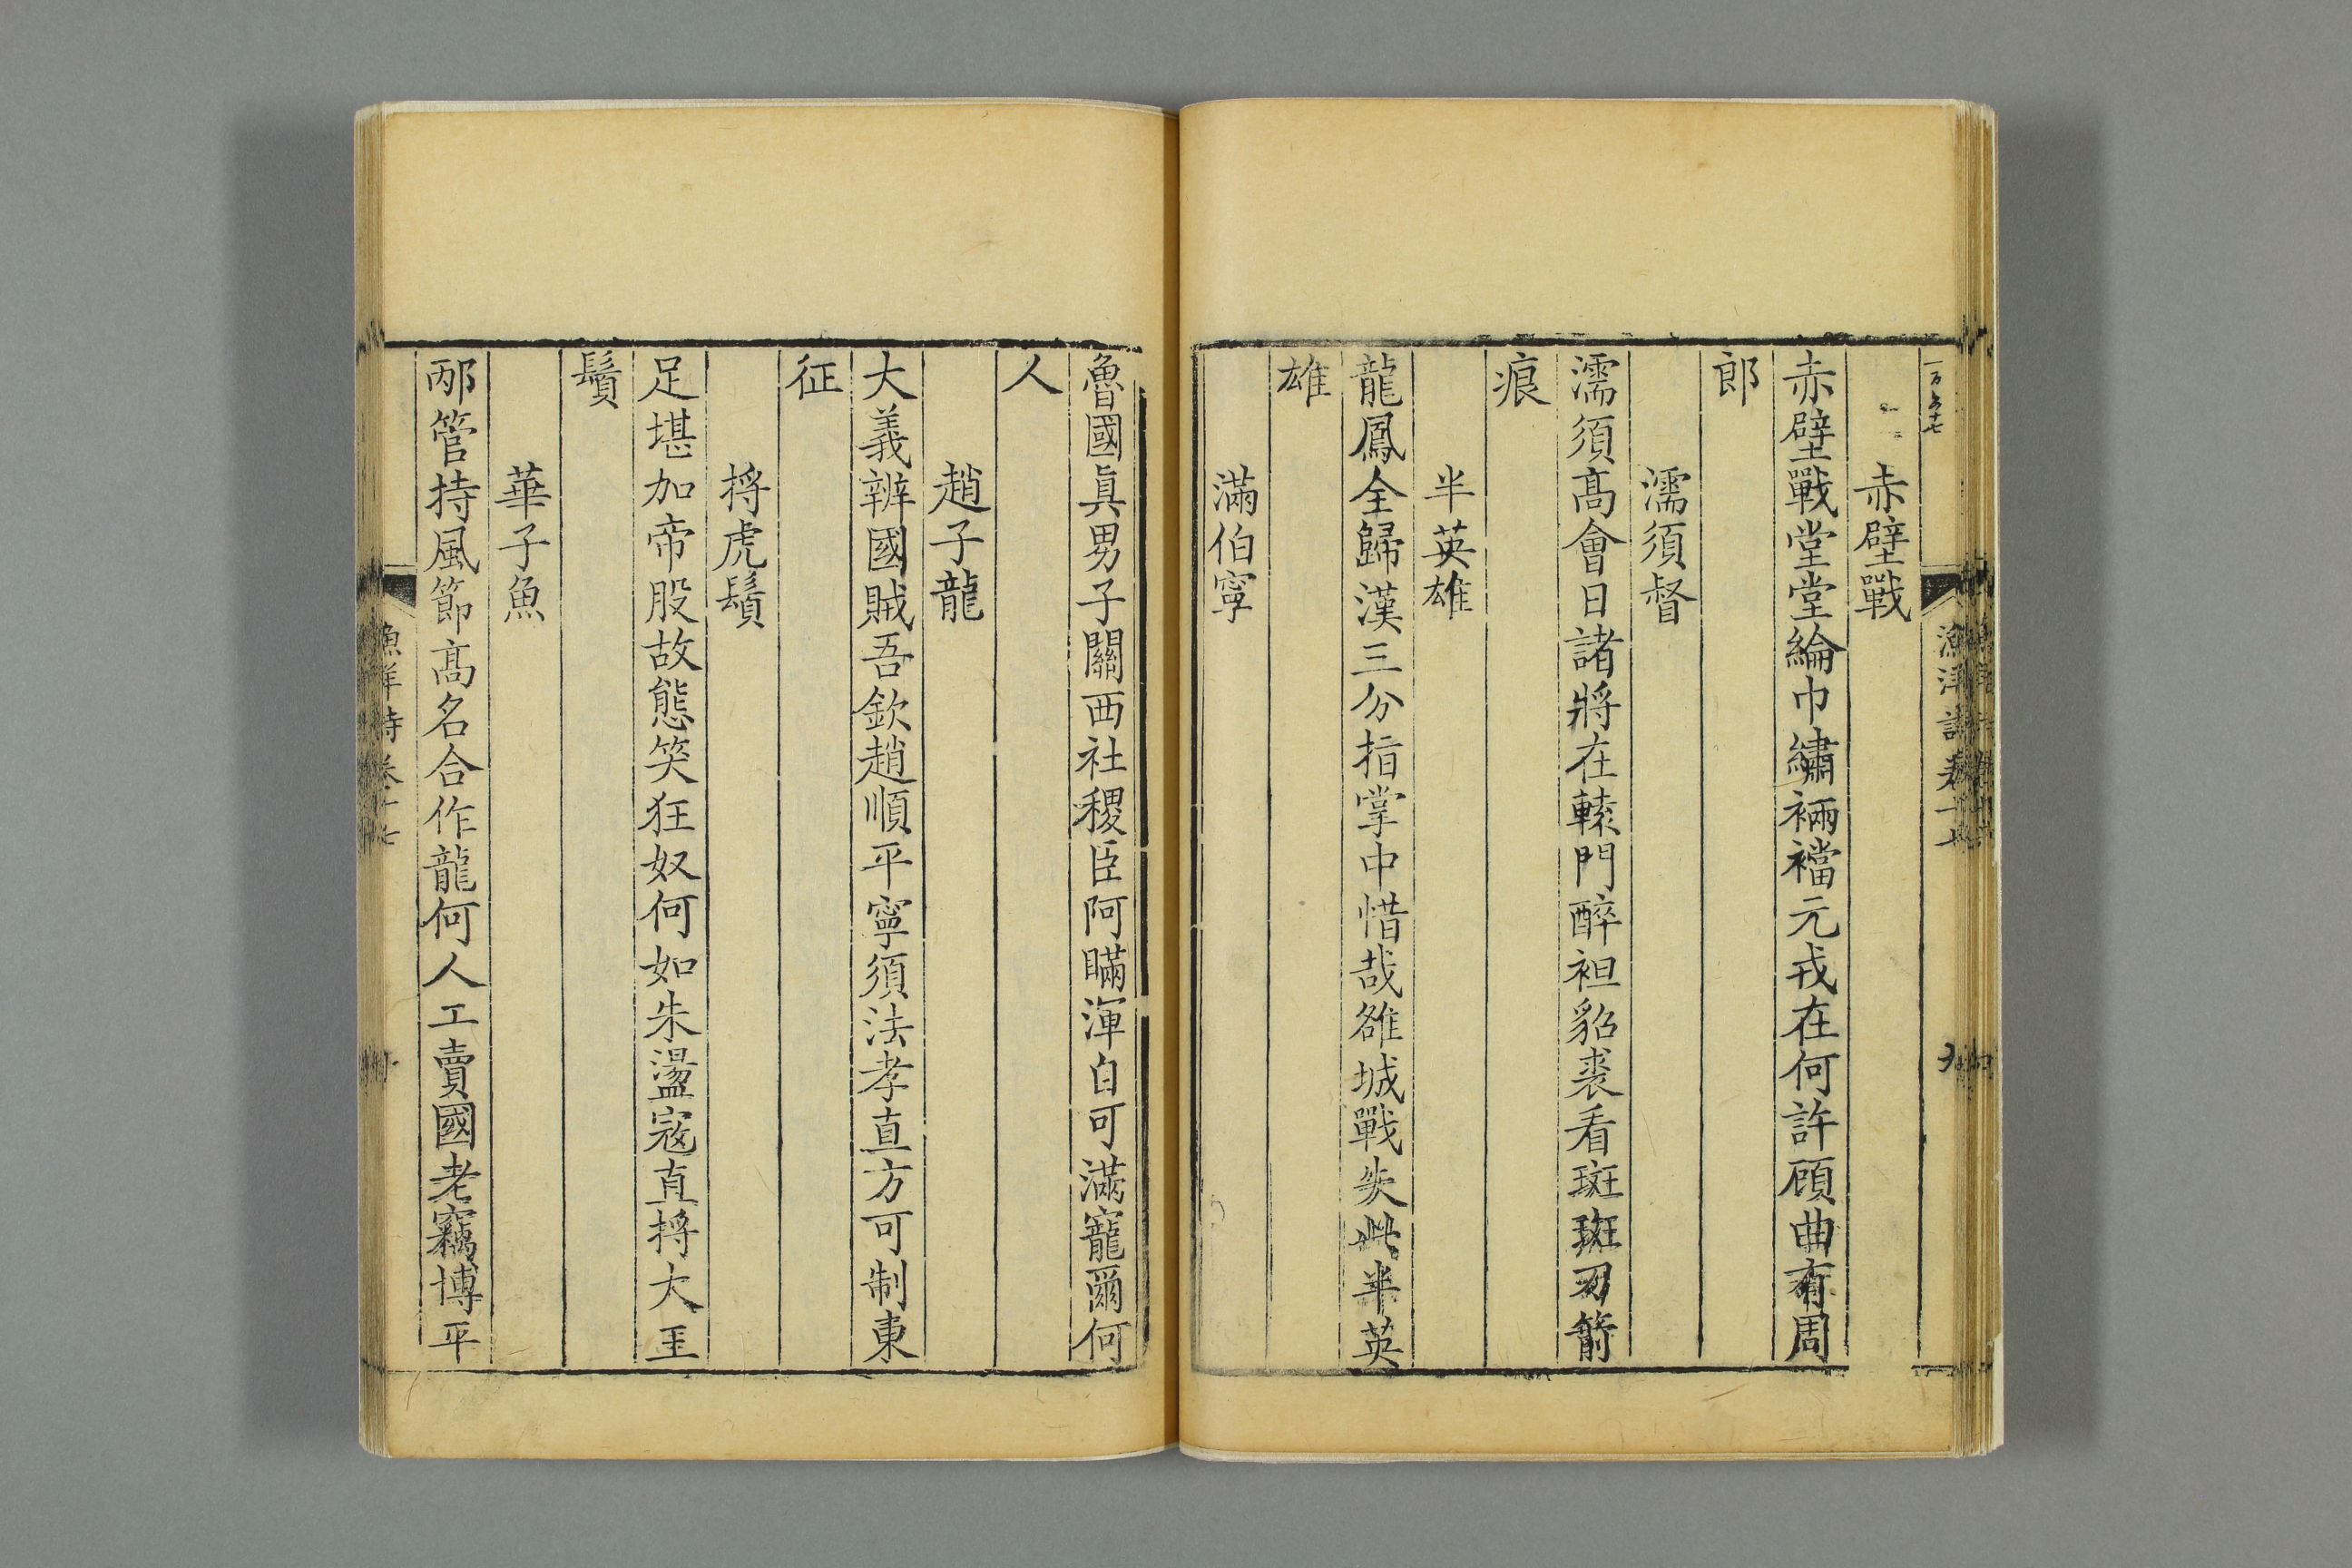 一百五十七
赤壁戰
赤壁戰堂堂綸巾繡裲襠元戎在何許顧曲有周
郎
濡須督
濡須高會日諸將在轅門醉袒貂裘看斑斑刃箭
痕
半英雄
龍鳳全歸漢三分指掌中惜哉雒城戰失此半英
雄
滿伯寧
漁洋詩卷十七
九
魯國眞男子關西社稷臣阿瞞渾自可滿寵爾何
人
趙子龍
大義辨國賊吾欽趙順平寧須法孝直方可制東
征
捋虎鬚
足堪加帝股故態笑狂奴何如朱盪寇直捋大王
鬚
華子魚
邴管持風節高名合作龍何人工賣國老竊博平
漁洋詩卷十七